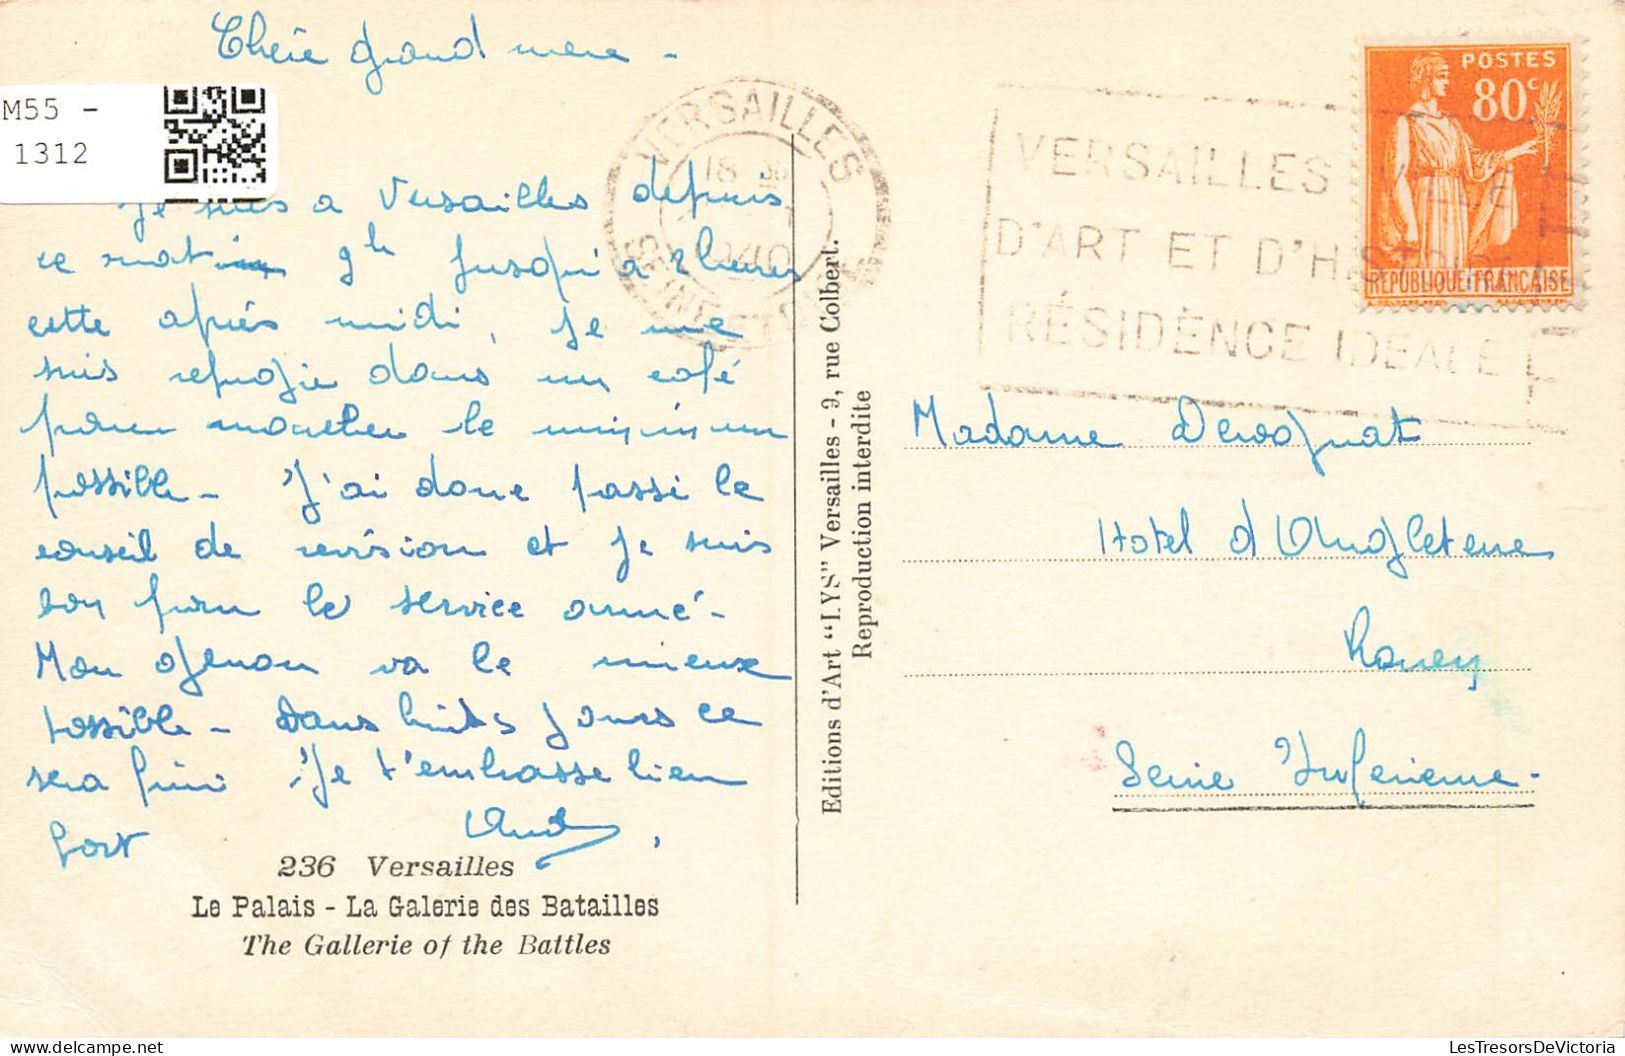 Chère grand mere -
M55 -
1312
Je suis a Versailles depuis
ce matin 9h jusqu'a 2 heures
cette après midi, je me
suis refugie dans un café
pour marcher le minimum
possible - J'ai donc passé le
conseil de revision et je suis
bon pour le service armé -
Mon genou va le mieux
possible - Dans huits jours ce
sera fini. Je t'embrasse bien
fort
236 Versailles
Le Palais - La Galerie des Batailles
The Gallerie of the Battles
VERSAILLES
18 30
1940
SEINE ET OISE
Editions d'Art "LYS" Versailles - 9, rue Colbert.
Reproduction interdite
VERSAILLES VILLE
D'ART ET D'HISTOIRE
RÉSIDENCE IDEALE
POSTES
80c
REPUBLIQUE FRANÇAISE
Madame
Hotel d'Angleterre
Rouen
Seine Inferieure -
LesTresorsDeVictoria
delcampe.net